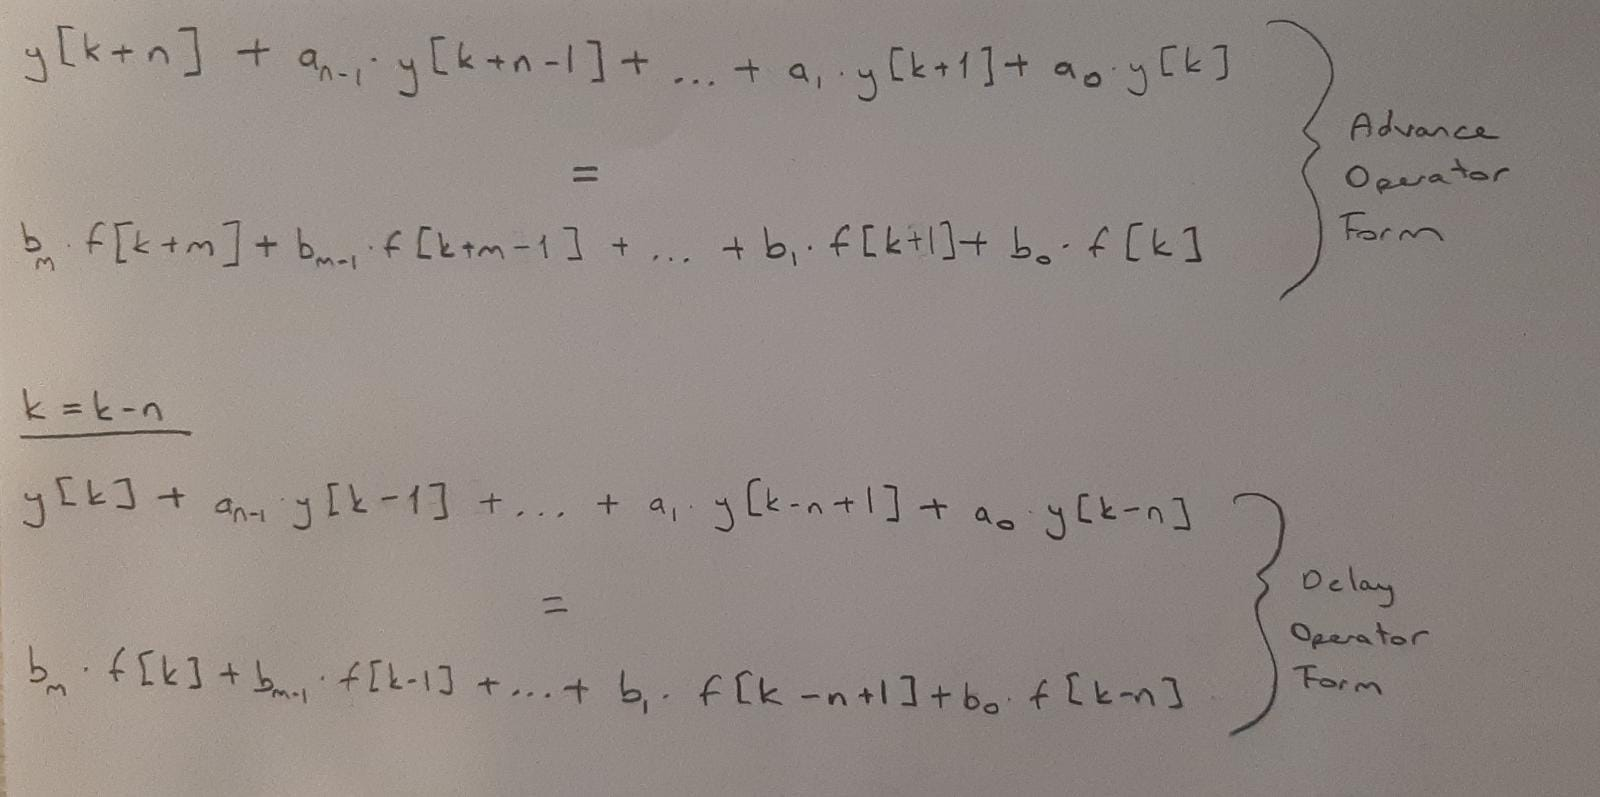 y[k+n] + aₙ₋₁· y[k+n-1] + ... + a₁· y[k+1] + a₀· y[k]
=
bₘ· f[k+m] + bₘ₋₁· f[k+m-1] + ... + b₁· f[k+1] + b₀· f[k]
Advance
Operator
Form
k = k-n
y[k] + aₙ₋₁· y[k-1] + ... + a₁· y[k-n+1] + a₀· y[k-n]
=
bₘ· f[k] + bₘ₋₁· f[k-1] + ... + b₁· f[k-n+1] + b₀· f[k-n]
Delay
Operator
Form